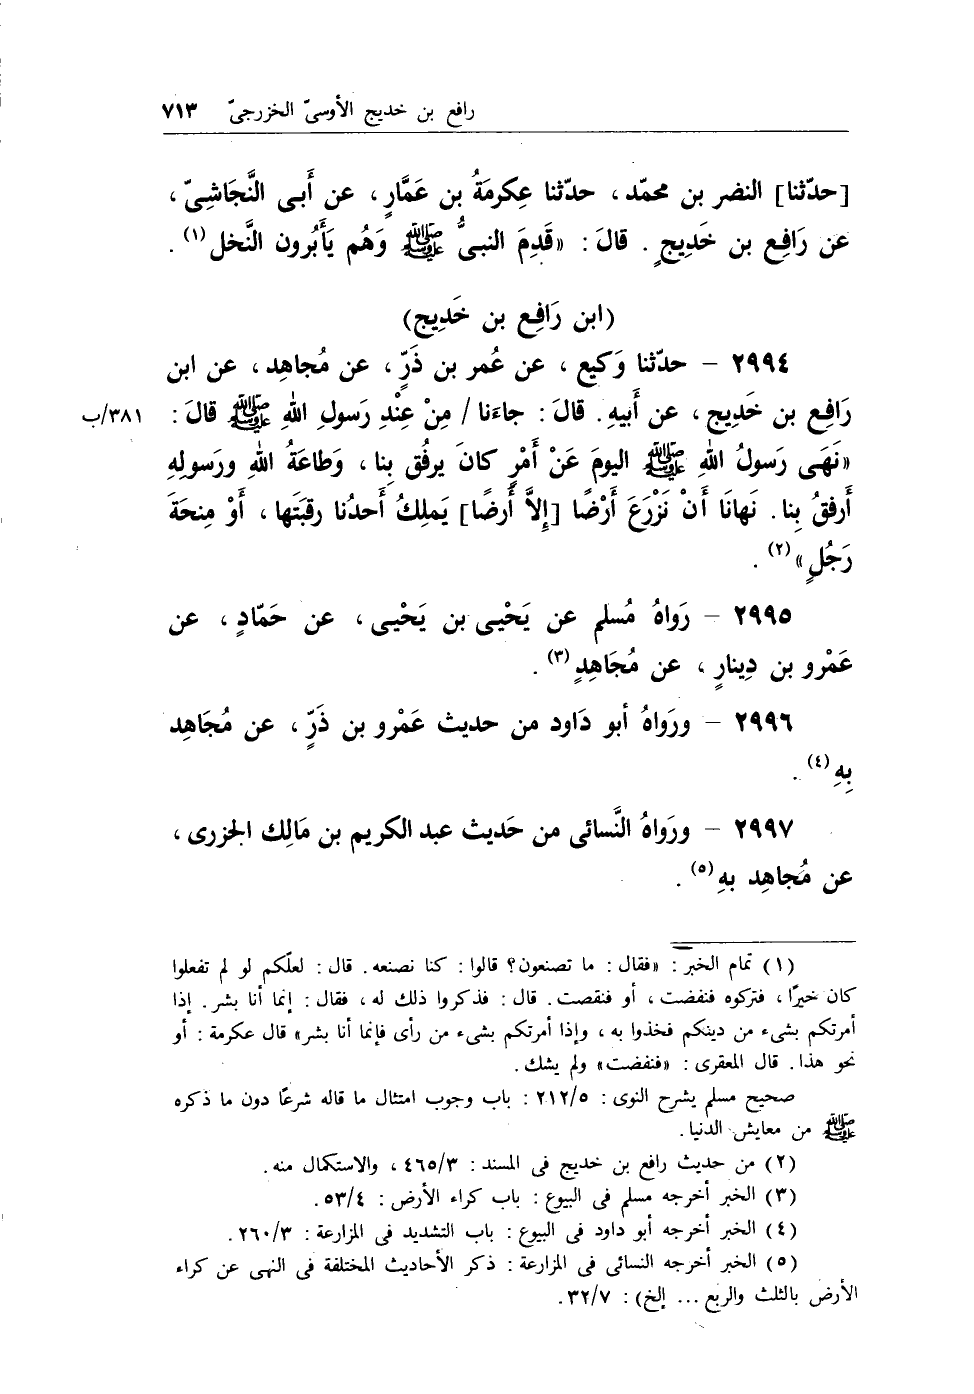 رافع بن خديج الأوسىّ الخزرجىّ ٧١٣
[حدّثنا] النضر بن محمّد ، حدّثنا عِكرمَةُ بن عَمَّارٍ ، عن أَبى النَّجَاشِىّ ،
عن رَافِع بن خَدِيجٍ . قالَ : «قَدِمَ النبىُّ ﷺ وَهُم يَأْبُرون النَّخل(١) .
(ابن رَافِع بن خَدِيج)
٢٩٩٤ – حدّثنا وَكيع ، عن عُمر بن ذَرٍّ ، عن مُجاهِد ، عن ابن
رَافِع بن خَدِيج ، عن أَبيهِ . قالَ : جاءَنا / مِنْ عِنْدِ رَسولِ اللهِ ﷺ قالَ : ٣٨١/ب
«نَهَى رَسولُ اللهِ ﷺ اليومَ عَنْ أَمْرٍ كانَ يرفُق بِنا ، وَطاعَةُ اللهِ ورَسولِهِ
أَرفقُ بِنا . نَهانَا أَنْ نَزْرَعَ أَرْضًا [إلاَّ أَرضًا] يَملِكُ أَحدُنا رقبَتَها ، أَوْ مِنحَةَ
رَجُلٍ»(٢) .
٢٩٩٥ – رَواهُ مُسلم عن يَحْيى بن يَحْيى ، عن حَمّادٍ ، عن
عَمْرو بن دِينارٍ ، عن مُجَاهِدٍ(٣) .
٢٩٩٦ – ورَواهُ أبو دَاود من حديث عَمْرو بن ذَرّ ، عن مُجَاهِد
بِهِ(٤) .
٢٩٩٧ – ورَواهُ النَّسائى من حَديث عبد الكريم بن مَالِك الجزرى ،
عن مُجاهِد بهِ(٥) .
(١) تمام الخبر : «فقال : ما تصنعون؟ قالوا : كنا نصنعه . قال : لعلّكم لو لم تفعلوا
كان خيرًا ، فتركوه فنفضت ، أو فنقصت . قال : فذكروا ذلك له ، فقال : إنما أنا بشر . إذا
أمرتكم بشىء من دينكم فخذوا به ، وإذا أمرتكم بشىء من رأى فإنما أنا بشر» قال عكرمة : أو
نحو هذا . قال المعقرى : «فنفضت» ولم يشك .
صحيح مسلم يشرح النوى : ٢١٢/٥ : باب وجوب امتثال ما قاله شرعًا دون ما ذكره
ﷺ من معايش الدنيا .
(٢) من حديث رافع بن خديج فى المسند : ٤٦٥/٣ ، والاستكمال منه .
(٣) الخبر أخرجه مسلم فى البيوع : باب كراء الأرض : ٥٣/٤ .
(٤) الخبر أخرجه أبو داود فى البيوع : باب التشديد فى المزارعة : ٢٦٠/٣ .
(٥) الخبر أخرجه النسائى فى المزارعة : ذكر الأحاديث المختلفة فى النهى عن كراء
الأرض بالثلث والربع ... إلخ) : ٣٢/٧ .